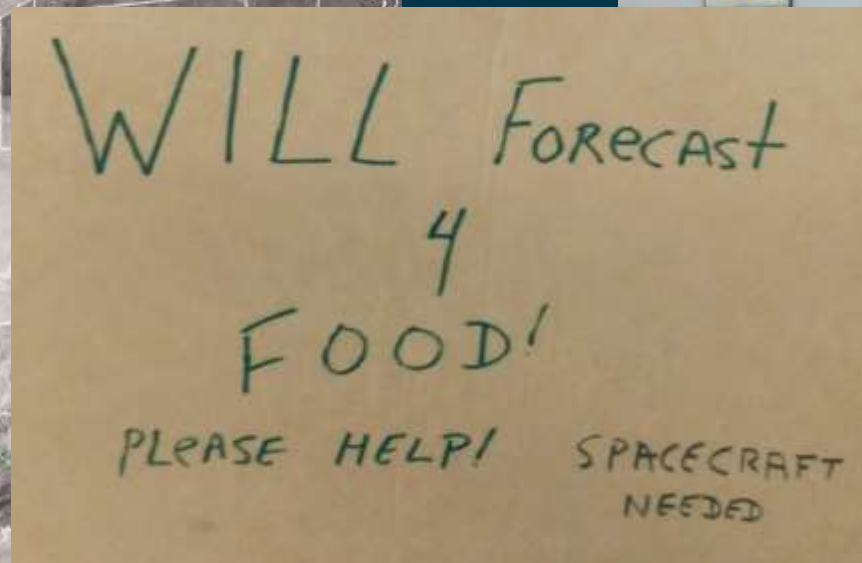 WILL FORECAST
4
FOOD!
PLEASE HELP! SPACECRAFT
NEEDED